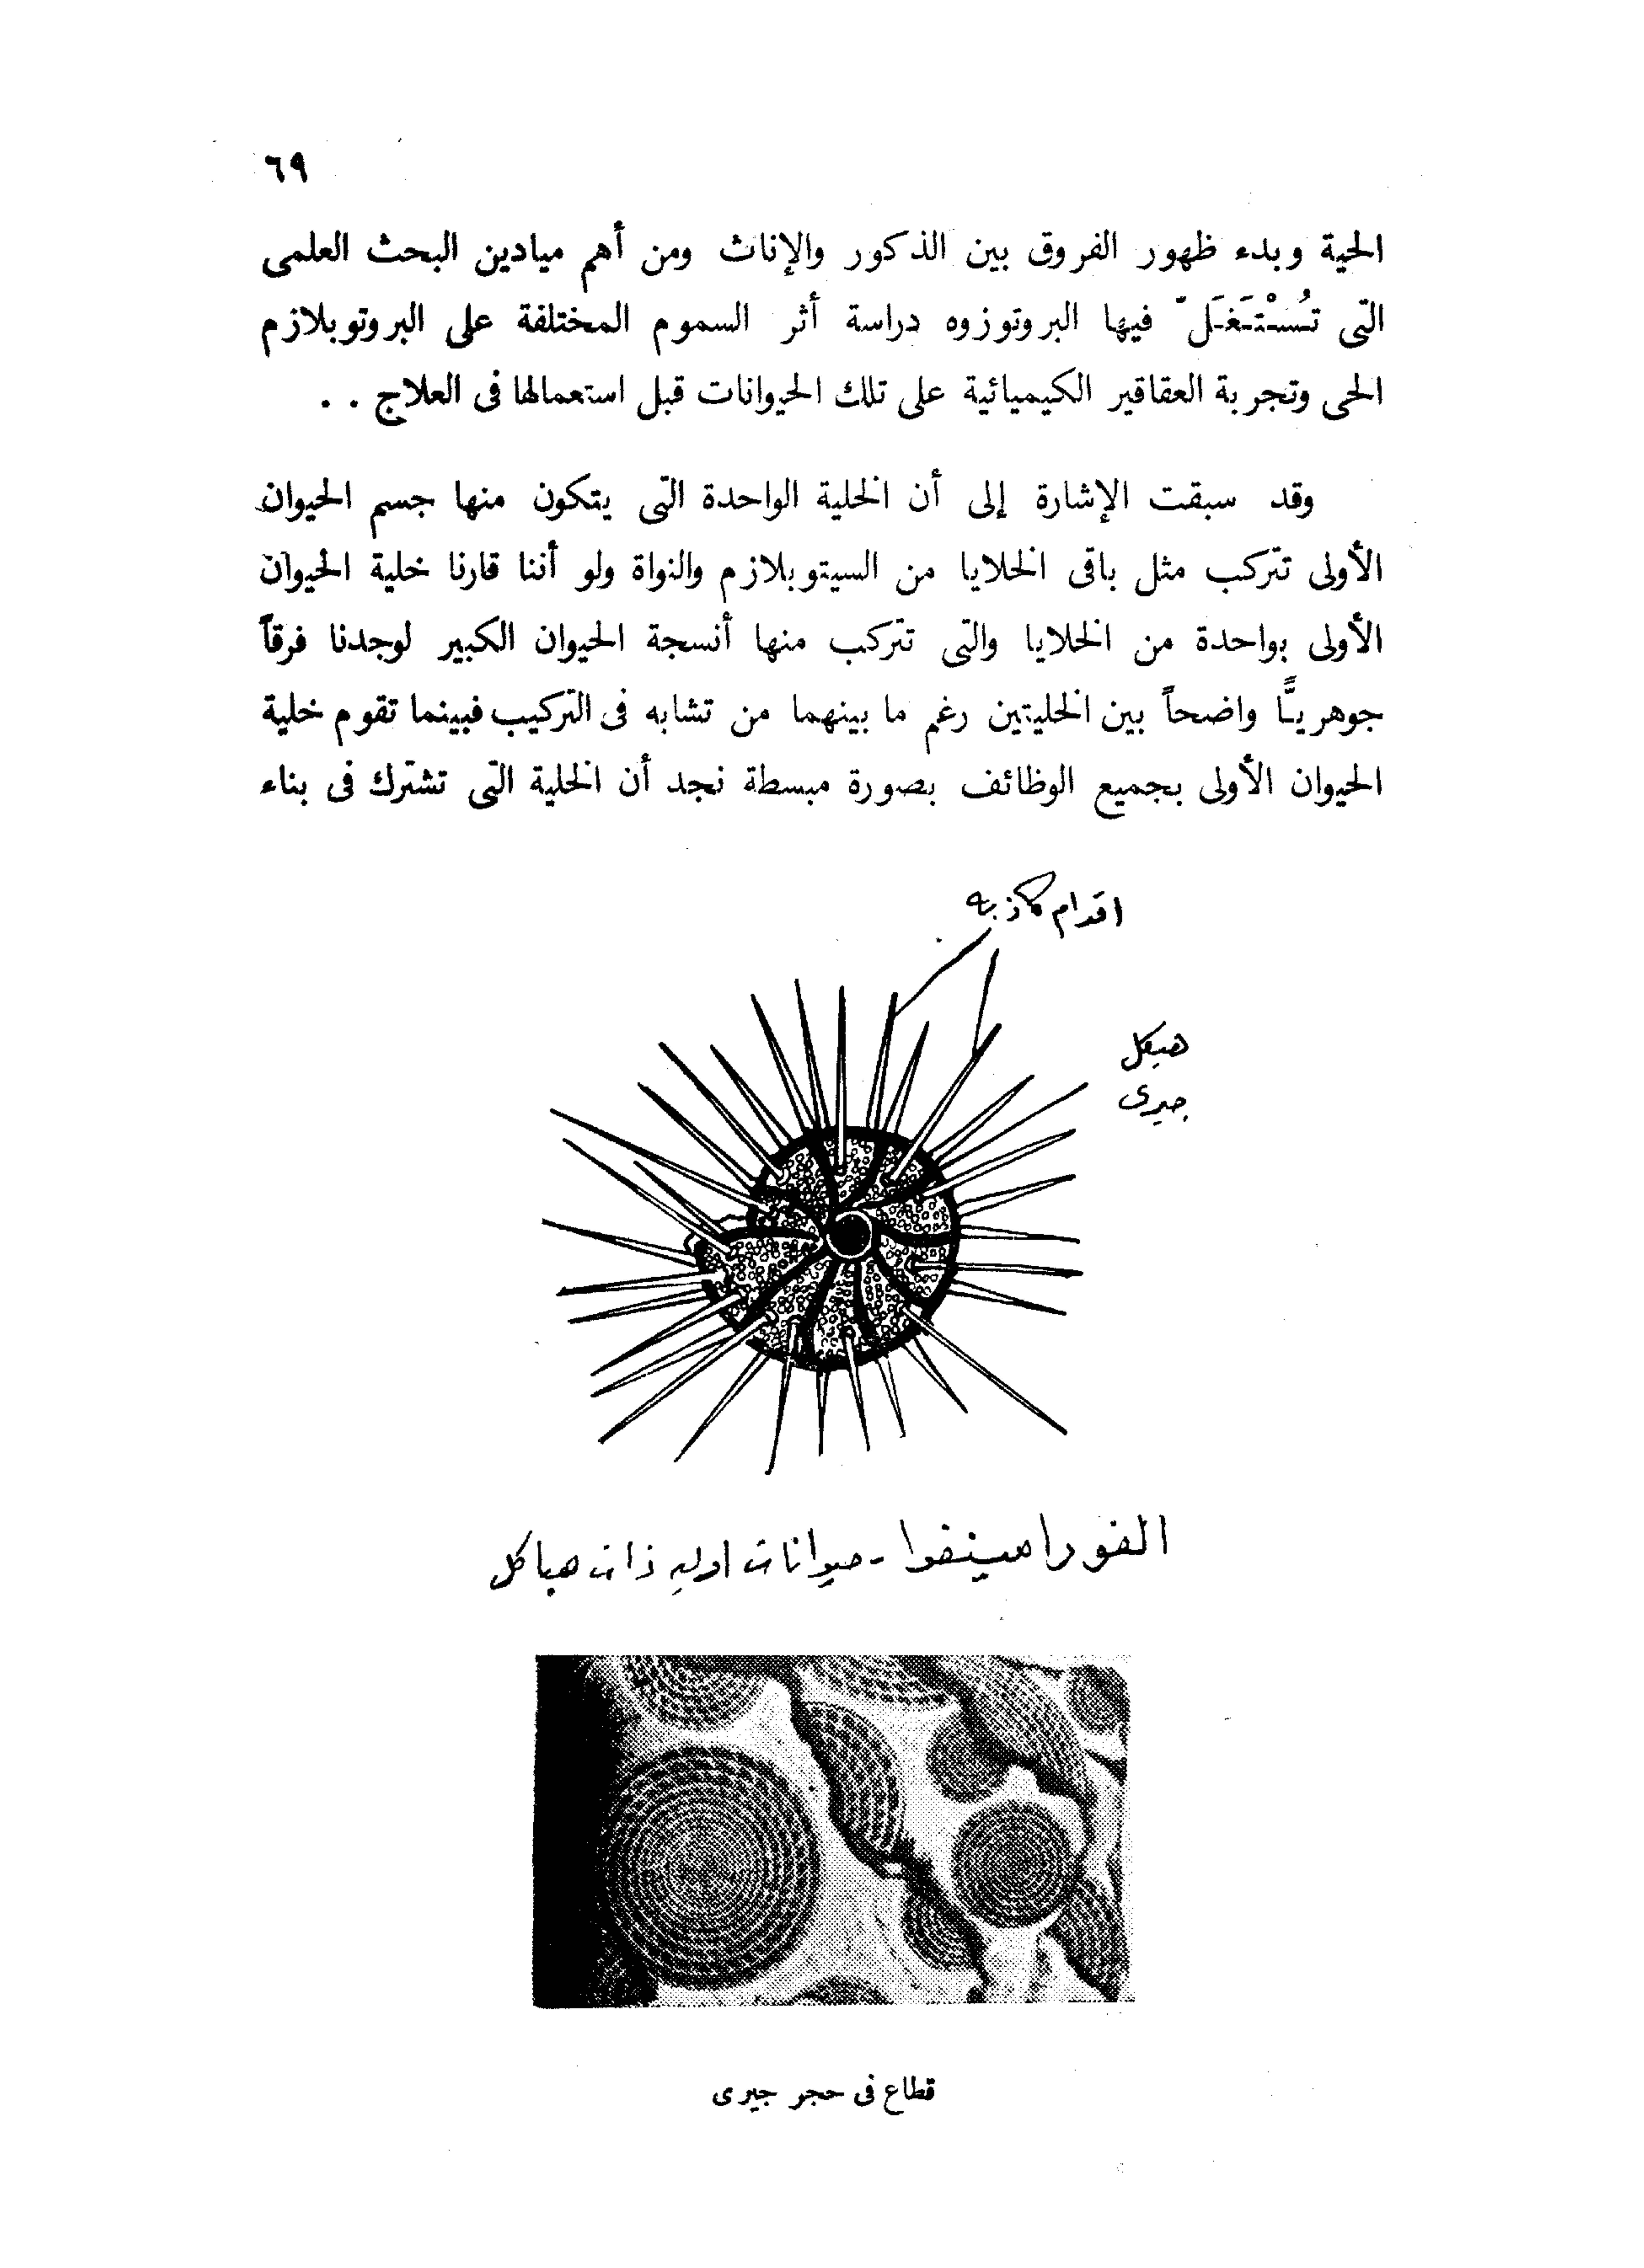 ٦٩
الحية وبدء ظهور الفروق بين الذكور والإناث ومن أهم ميادين البحث العلمى
التى تُسْتَغَلّ فيها البروتوزوه دراسة أثر السموم المختلفة على البروتوبلازم
الحى وتجربة العقاقير الكيميائية على تلك الحيوانات قبل استعمالها فى العلاج . .
وقد سبقت الإشارة إلى أن الخلية الواحدة التى يتكون منها جسم الحيوان
الأولى تتركب مثل باقى الخلايا من السيتوبلازم والنواة ولو أننا قارنا خلية الحيوان
الأولى بواحدة من الخلايا والتى تتركب منها أنسجة الحيوان الكبير لوجدنا فرقاً
جوهريًّا واضحاً بين الخليتين رغم ما بينهما من تشابه فى التركيب فبينما تقوم خلية
الحيوان الأولى بجميع الوظائف بصورة مبسطة نجد أن الخلية التى تشترك فى بناء
اقدام كاذبه
هيكل
جيرى
الفورامينفرا - حيوانات اوليه ذات هياكل
قطاع فى حجر جيرى